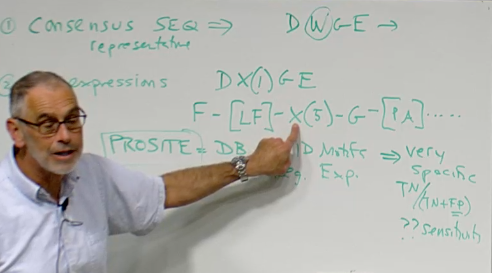 ① CONSENSUS SEQ ⇒ DWGE →
representative
expressions DX(1)GE
F-[LF]-X(5)-G-[PA].....
PROSITE = DB D Motifs ⇒ very
Reg. Exp. specific
TN/(TN+FP)
?? sensitivity